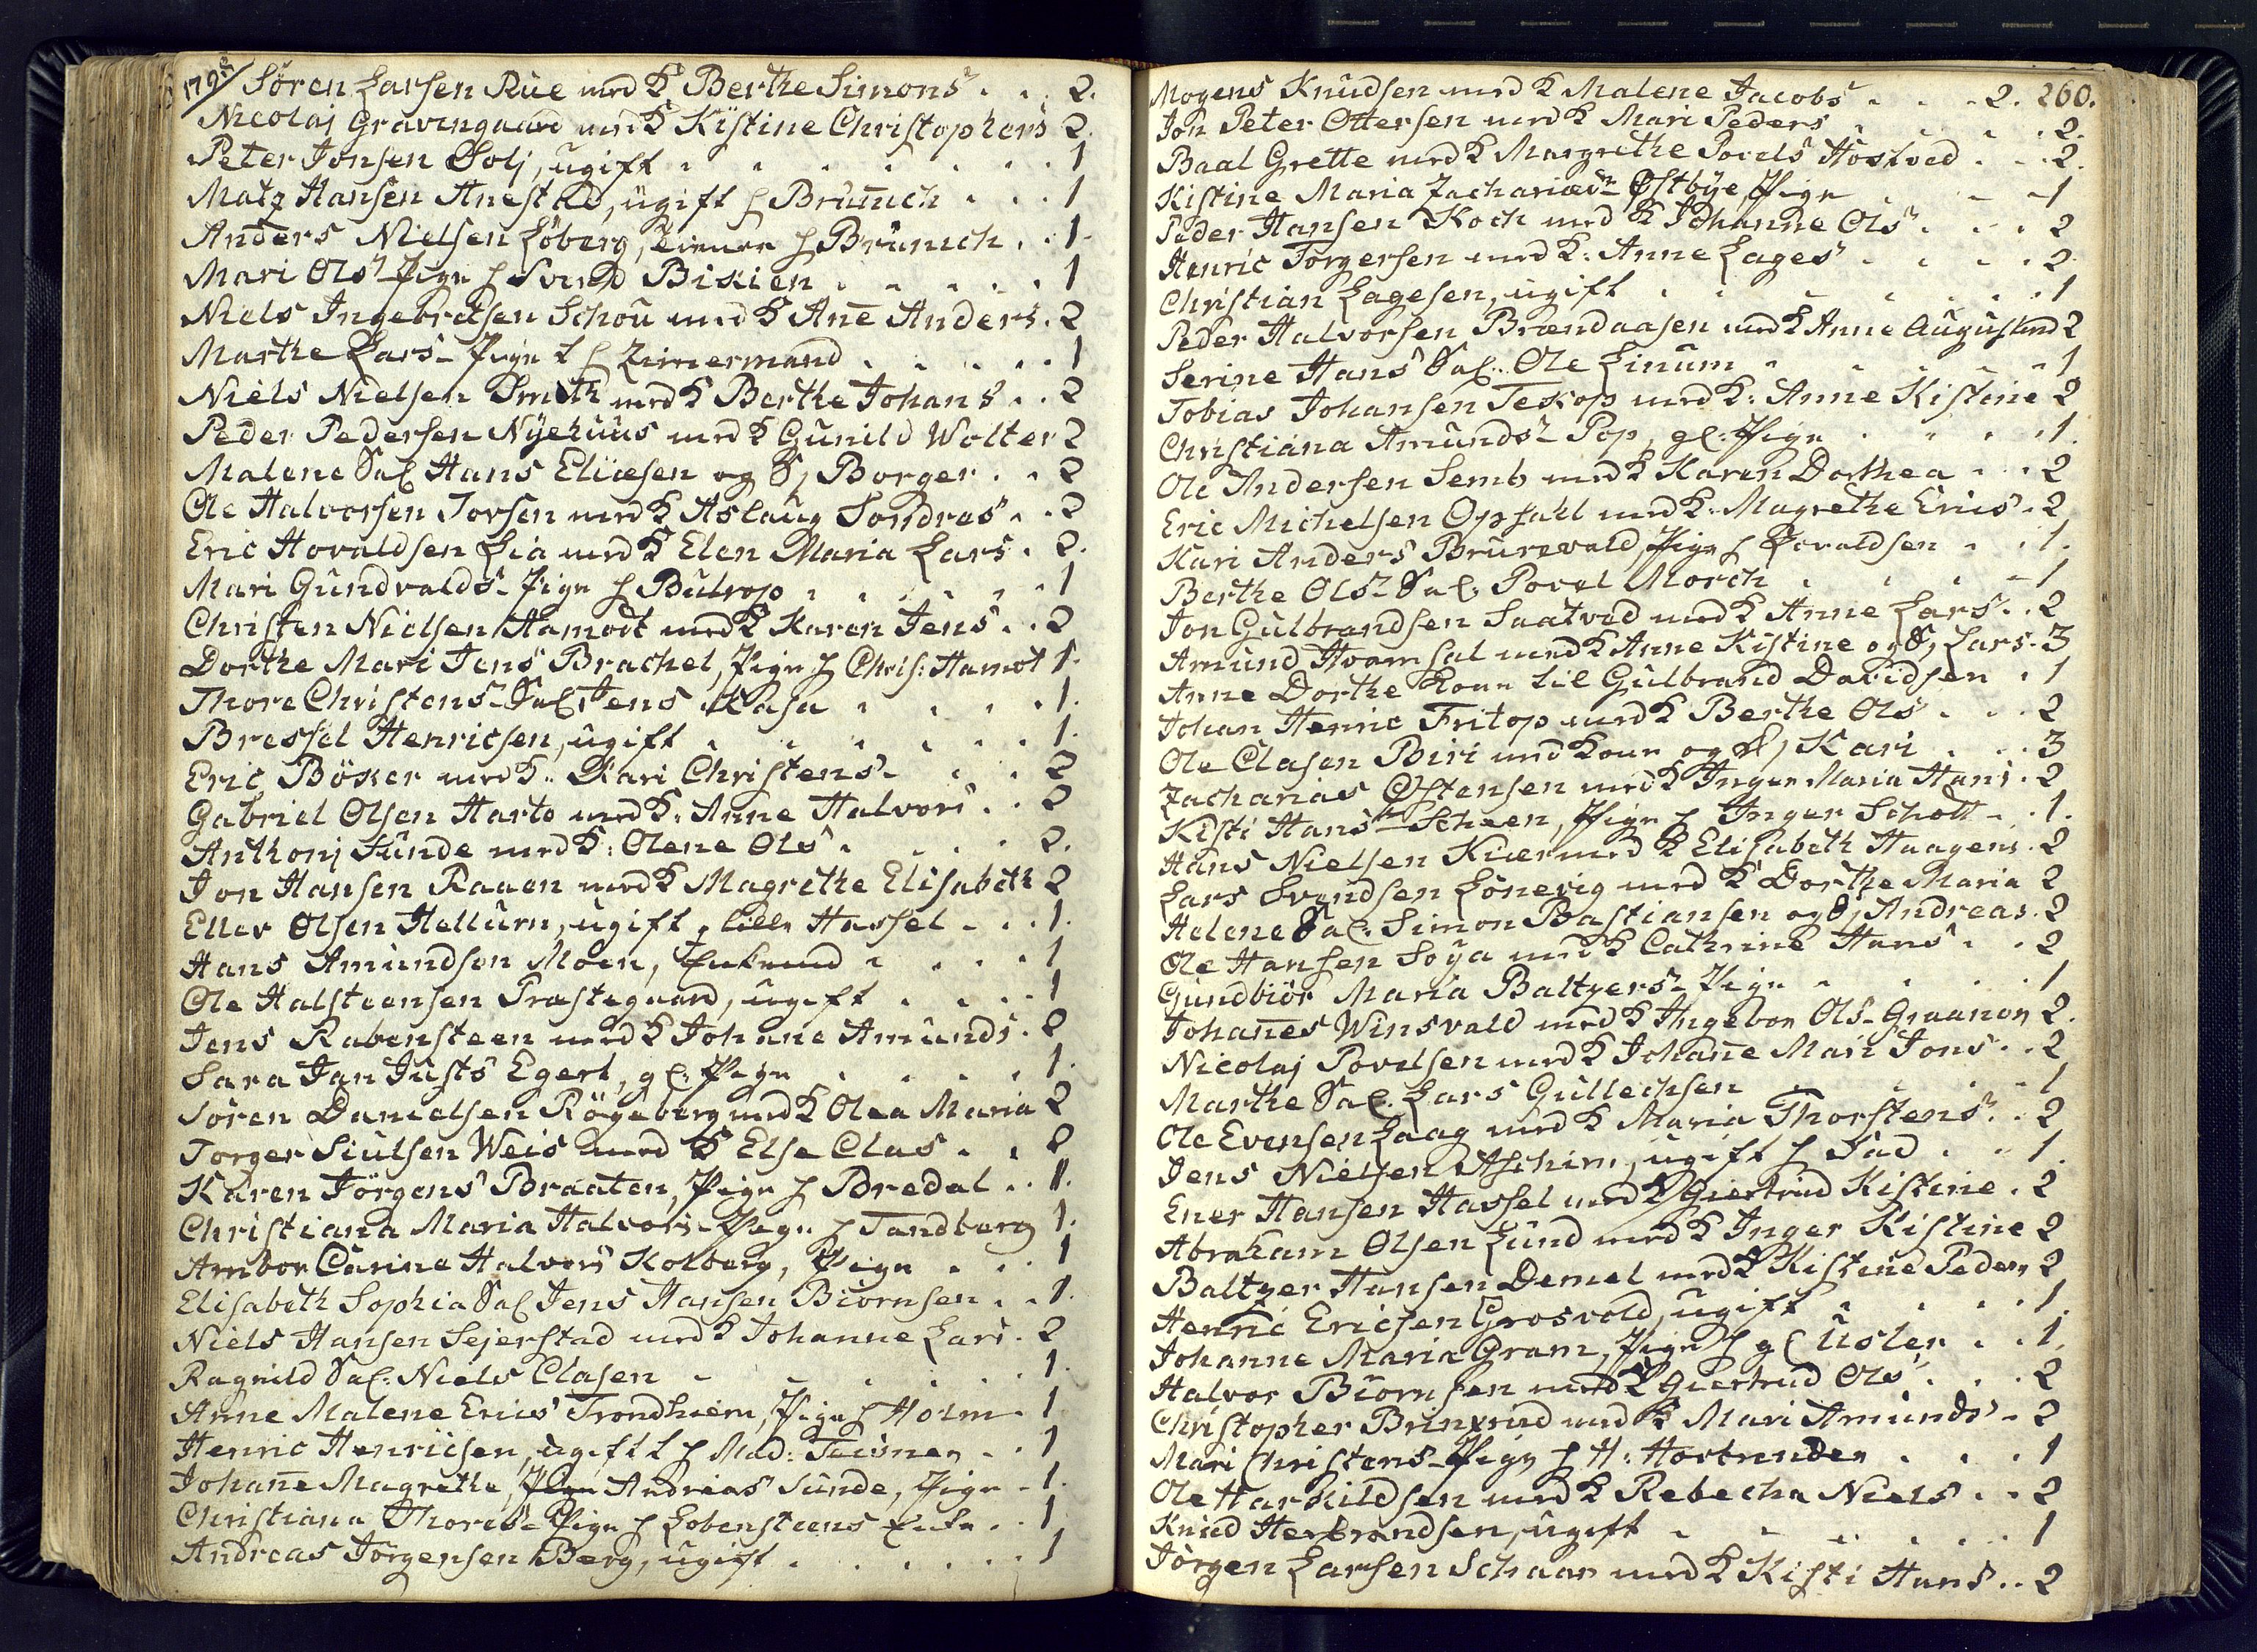 Sören Larsen Rue med K Berthe Simons . . 2.
Nicolaj Gravengaard med K Kistine Christophers 2.
Peter Jonsen Solj, ugift . . . . . . . 1
Matz Hansen Anestad, ugift h Brünich . . . 1
Anders Nielsen Löberg, tiener h Brünich . . 1.
Mari Ols Pige h Svend Bikien . . . . . 1
Niels Ingebretsen Schou med K Ane Anders . 2
Marthe Lars Pige h Zimermand . . . . . 1
Niels Nielsen Smith med K Berthe Johans . . 2
Peder Pedersen Nÿehuus med K Gunild Wolter 2
Malene Sal Hans Eliæsen og S, Borger . . 2
Ole Halvorsen Torsen med K Aslaug Sondres . . 2
Eric Hovaldsen Lia med K Elen Maria Lars . 2.
Mari Gundvalds Pige h Butrop . . . . . 1
Christen Nielsen Hamodt med K Karen Jens . . 2
Dorthe Mari Jens Brachel, Pige h Chrls: Hamot 1.
Thore Christens Sal Jens Kasa . . . . 1.
Bressel Henricsen, ugift . . . . . . 1.
Eric Böker med K. Kari Christens . . . 2
Gabriel Olsen Harto med K. Anne Halvors . . 2
Anthonj Sunde med K: Olene Ols . . . . 2.
Jon Hansen Raaen med K Magrethe Elisabeth 2
Eller Olsen Hellum, ugift, lille Hassel . . . 1.
Hans Amundsen Moen, Enkemd . . . . 1
Ole Halsteensen Præstegaard, ugift . . . . 1
Jens Rabensteen med K Johane Amunds . 2
Sara Jan Justs Egert, gl. Pige . . . . . 1.
Sören Danielsen Rögeberg med K Olea Maria 2
Torger Siulsen Weis med K Else Clas . . 2
Karen Jörgens Braaten, Pige h Bredal . . 1.
Christiana Maria Halvors Pige h Tandberg 1.
Ambor Carine Halvors Kolberg, Pige . . . 1
Elisabeth Sophia Sal Jens Hansen Biörnsen . . 1.
Niels Hansen Sejerstad med K Johanne Lars . 2
Ragnild Sal: Niels Clasen . . . . . . 1.
Anne Malene Erics Trondhiem, Pige h Holm . 1
Henric Henricsen, ugift h Mad: Tuisner . . 1
Johane Magrethe, Andreas Sunde, Pige . 1.
Christiana Thores Pige h Lobensteens Enke . . 1
Andreas Jörgensen Berg, ugift . . . . . 1
Mogens Knudsen med K Malene Jacobs . . . 2. 260.
Jon Peter Ottersen med K Mari Peders . . . 2.
Baal Grette med K Margrethe Povels Hostved . . . 2.
Kistine Maria Zachariæds Østbye, Pige . . 1
Peder Hansen Koch med K Johanne Ols . . . 2
Henric Torgersen med K: Anne Lages . . . . 2.
Christian Lagesen, ugift . . . . . . . 1
Peder Halvorsen Brændaasen med K Anne Augustind 2
Serine Hans Sal. Ole Linum . . . . . 1
Tobias Johansen Teskop med K: Anne Kistine 2
Christiana Amunds Pop, gl: Pige . . . . 1.
Ole Andersen Semb med K Karen Dorthea . . . 2
Eric Michelsen Opsahl med K. Magrethe Erics . 2
Kari Anders Brurevald, Pige h Lovaldsen . . . 1.
Berthe Ols Sal. Povel Morch . . . . . 1
Jon Gulbrandsen Saatved med K Anne Lars . . 2
Amund Hvamsal med K Anne Kistine og S, Lars . 3
Anne Dorthe Kone til Gulbrand Davidsen . 1
Johan Henric Fritop med K Berthe Ols . . . 2
Ole Clasen Biri med Kone og D, Kari . . . 3
Zacharias Østensen med K Inger Maria Hans . 2
Kisti Hans Scheen, Pige h Inger Scholt . . 1.
Hans Nielsen Kiær med K Elisabeth Haagens . 2
Lars Svendsen Lönevig med K Dorthe Maria 2
Helene Sal. Simon Bastiansen og S, Andreas . 2
Ole Hansen Soya med K Cathrine Hans . . 2
Gundbiör Maria Baltzers Pige . . . . 1
Johanes Winsvald med K Ingebor Ols Graanon 2.
Nicolaj Povelsen med K Johane Mari Jons . . 2
Marthe Sal. Lars Gullechsen . . . . . 1
Ole Evensen Laag med K Maria Thorstens . . 2
Jens Nielsen Aschim, ugift h Fad . . . 1.
Ener Hansen Hassel med K Giertrud Kistine . 2
Abraham Olsen Lund med K Inger Kistine 2
Baltzer Hansen Demel med K Kistine Peders 2
Henric Ericsen Grosvold, ugift . . . . . 1.
Johanne Maria Gram, Pige h gl Usler . . 1.
Halvor Biörnsen med K Giertrud Ols . . . 2
Christopher Brinxrud med K Mari Amunds . 2
Mari Christens Pige h H: Hovtrinder . . . 1
Ole Harkildsen med K Rebecha Niels . . 2
Knud Herbrandsen, ugift . . . . . . 1
Jörgen Larsen Schaar med K Kisti Hans . . 2